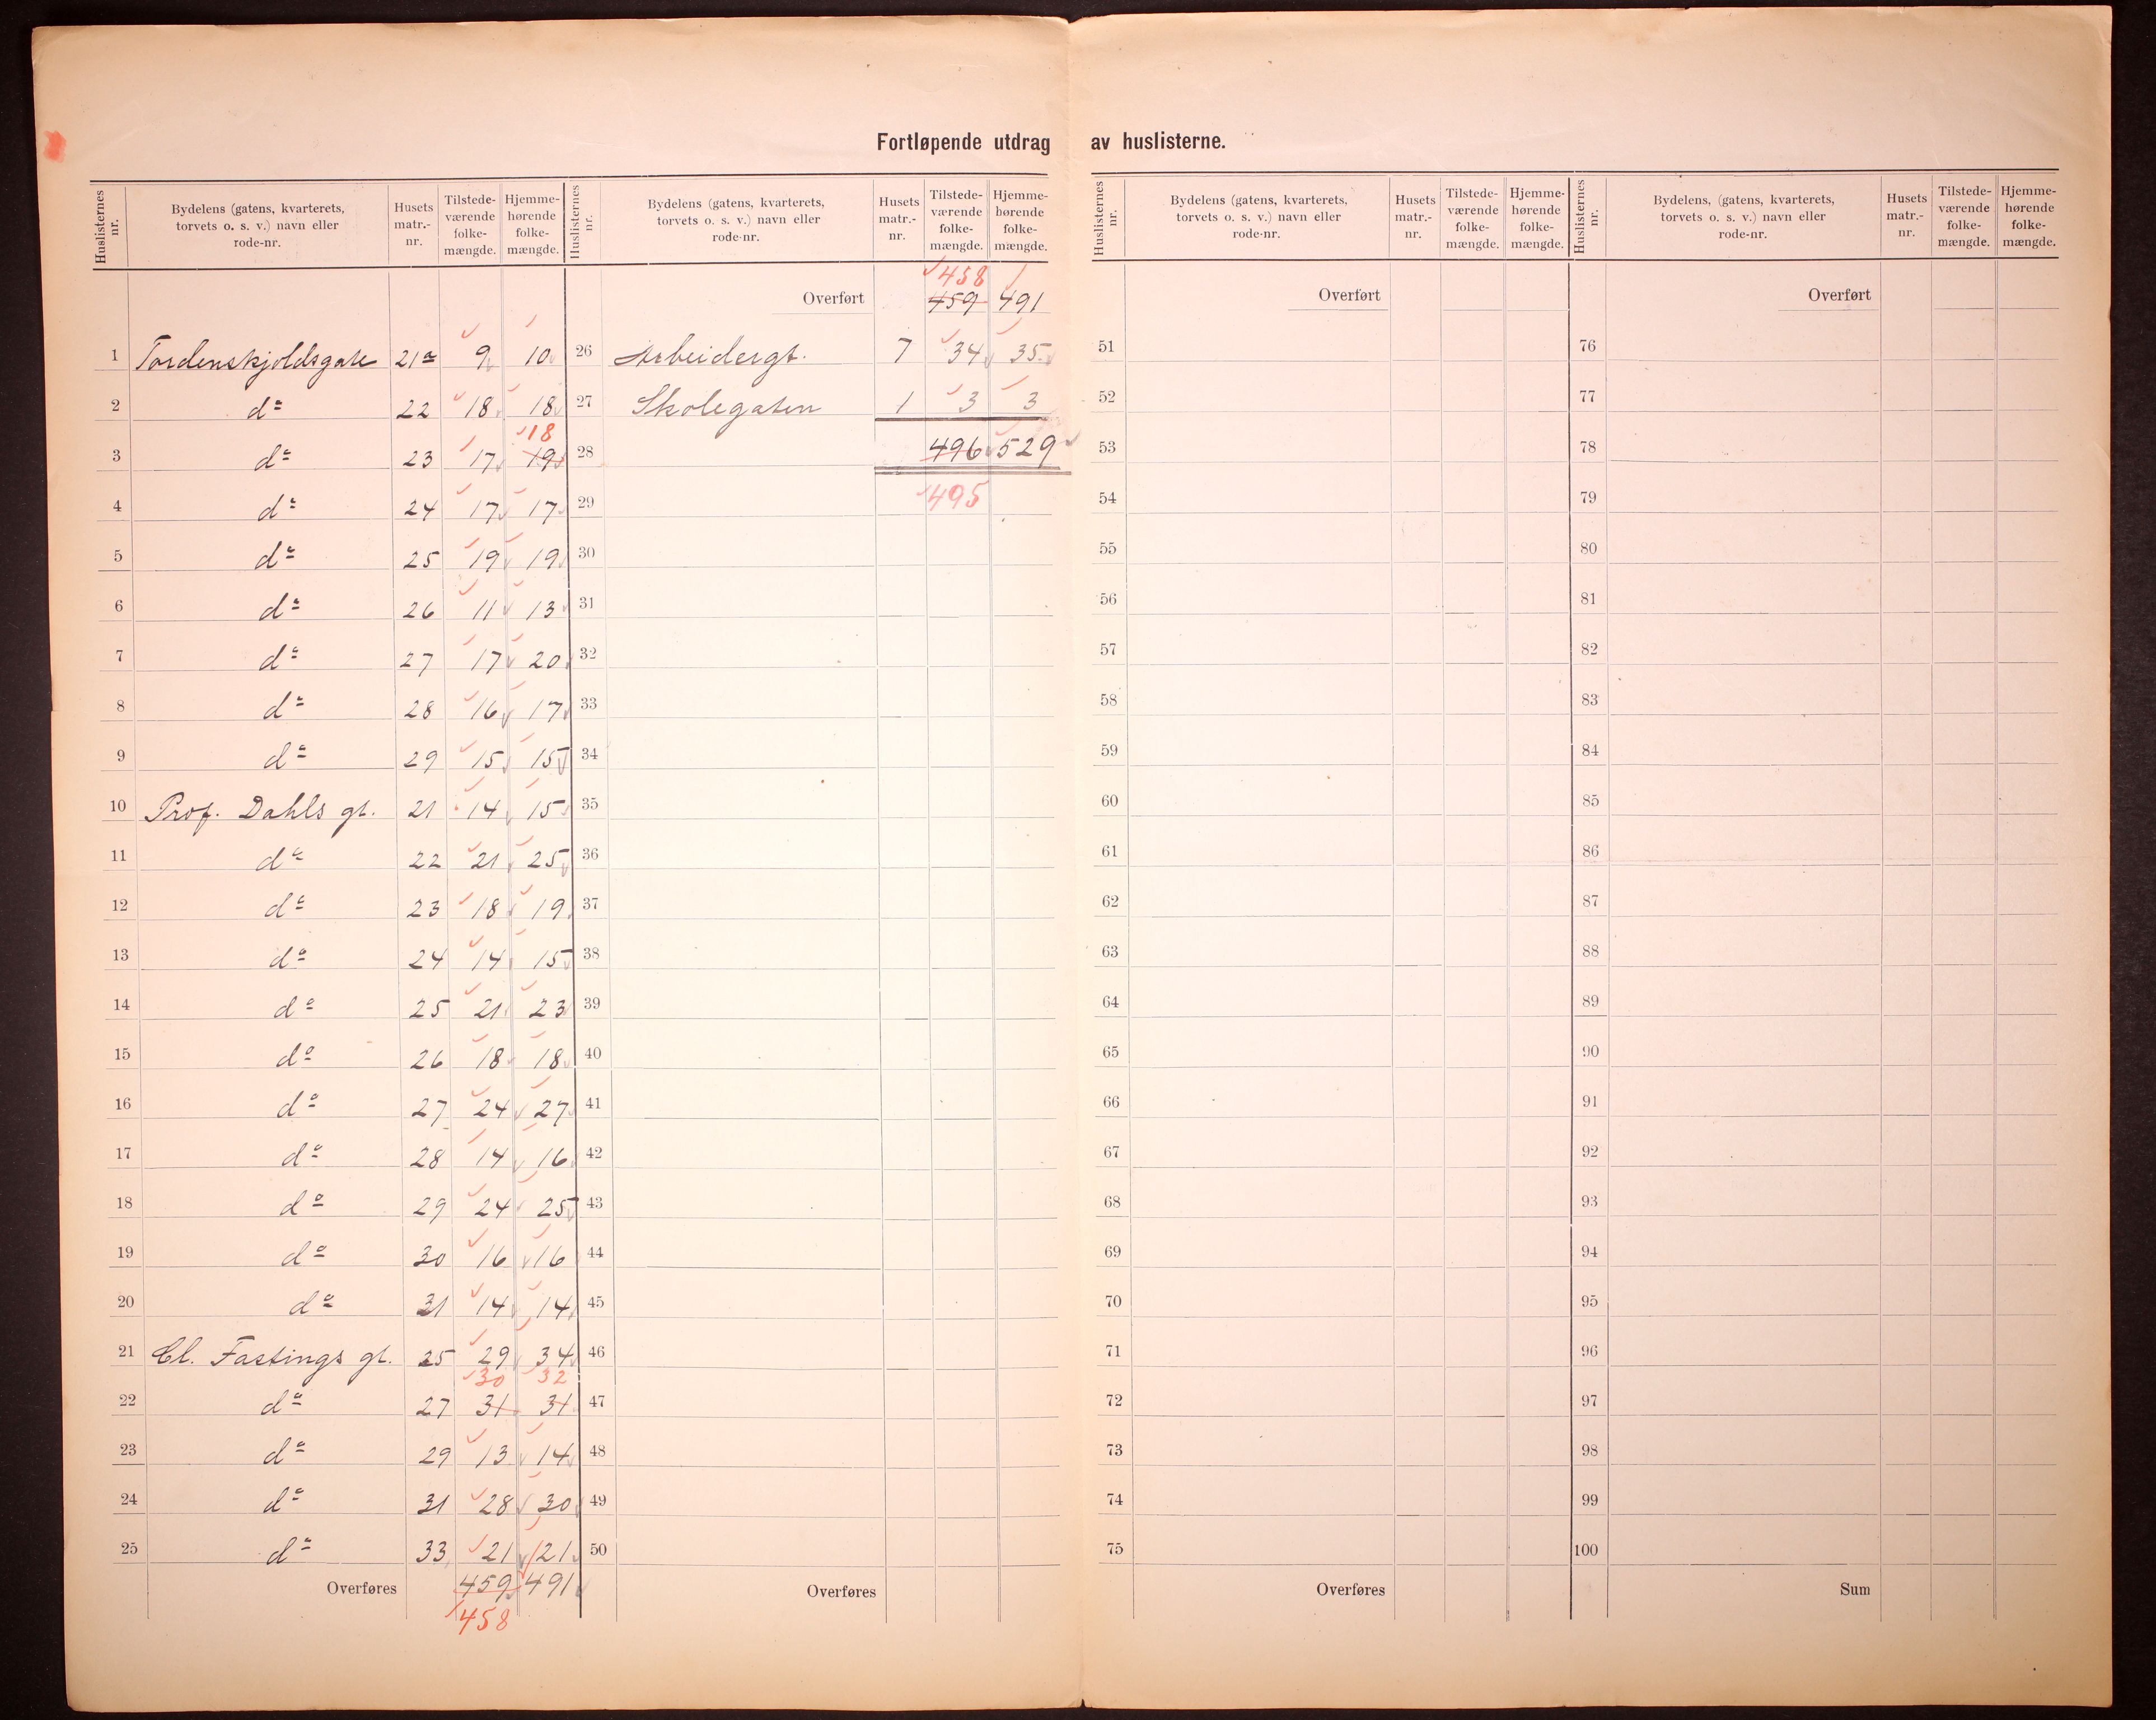 Fortløpende utdrag av huslisterne.
Huslisternes nr. | Bydelens (gatens, kvarterets, torvets o. s. v.) navn eller rode-nr. | Husets matr.-nr. | Tilstede-værende folke-mængde. | Hjemme-hørende folke-mængde.
1 Tordenskjoldsgate 21a 9 10
2 do 22 18 18
18
3 do 23 17 19
4 do 24 17 17
5 do 25 19 19
6 do 26 11 13
7 do 27 17 20
8 do 28 16 17
9 do 29 15 15
10 Prof. Dahls gt. 21 14 15
11 do 22 21 25
12 do 23 18 19
13 do 24 14 15
14 do 25 21 23
15 do 26 18 18
16 do 27 24 27
17 do 28 14 16
18 do 29 24 25
19 do 30 16 16
20 do 31 14 14
21 Cl. Fastings gt. 25 29 34
30 32
22 do 27 31 31
23 do 29 13 14
24 do 31 28 30
25 do 33 21 21
Overføres 459 491
458
Huslisternes nr. | Bydelens (gatens, kvarterets, torvets o. s. v.) navn eller rode-nr. | Husets matr.-nr. | Tilstede-værende folke-mængde. | Hjemme-hørende folke-mængde.
458
Overført 459 491
26 Arbeidergt. 7 34 35
27 Skolegaten 1 3 3
28 496 529
29 495
30
31
32
33
34
35
36
37
38
39
40
41
42
43
44
45
46
47
48
49
50
Overføres
Huslisternes nr. | Bydelens (gatens, kvarterets, torvets o. s. v.) navn eller rode-nr. | Husets matr.-nr. | Tilstede-værende folke-mængde. | Hjemme-hørende folke-mængde.
Overført
51
52
53
54
55
56
57
58
59
60
61
62
63
64
65
66
67
68
69
70
71
72
73
74
75
Overføres
Huslisternes nr. | Bydelens (gatens, kvarterets, torvets o. s. v.) navn eller rode-nr. | Husets matr.-nr. | Tilstede-værende folke-mængde. | Hjemme-hørende folke-mængde.
Overført
76
77
78
79
80
81
82
83
84
85
86
87
88
89
90
91
92
93
94
95
96
97
98
99
100
Sum